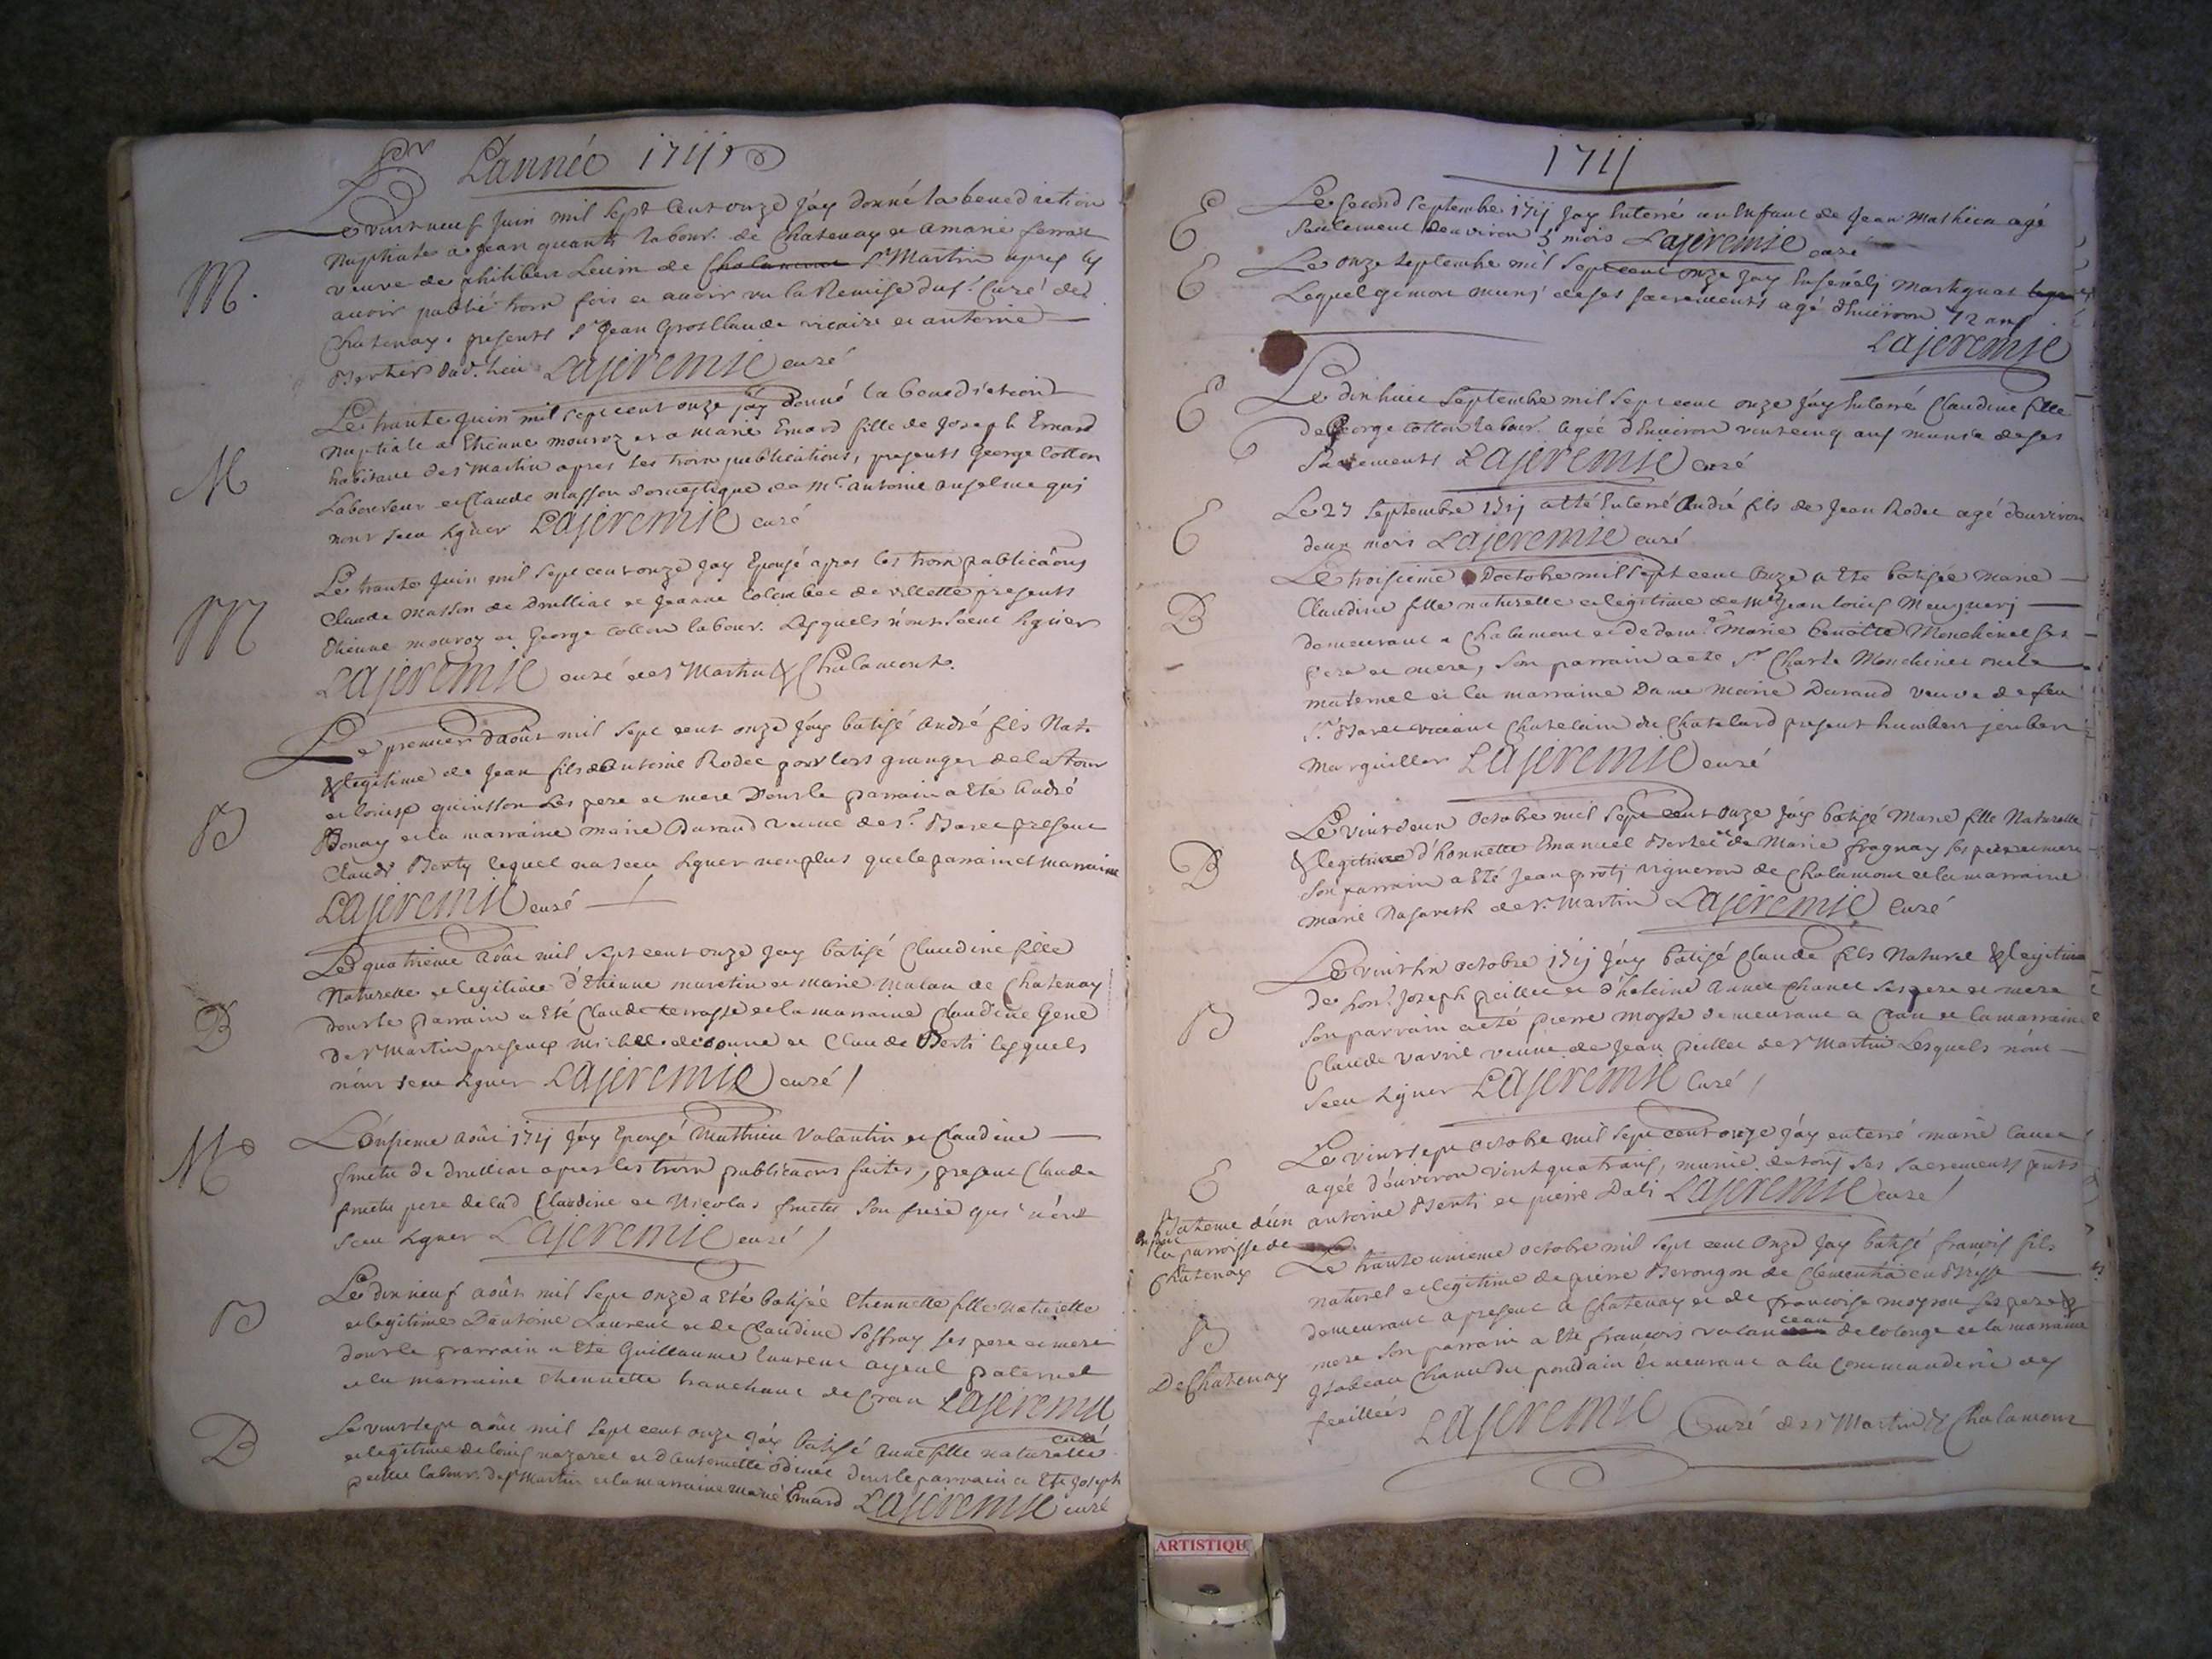 Pr L'année 1711
Le vint neuf Juin mil sept cent onze j'ay donné la benediction
nuptiale a Jean quanti labour. de Chatenay et a marie ferrat
veuve de philibert de Chalamont St Martin apres les
avoir publié trois fois et avoir vu la Remise du Sr. Curé de
Chatenay. presents Sr Jean Grosclaude vicaire et antoine
Berthier dud. lieu Lajeremie curé
M.
Le trante Juin mil sept cent onze j'ay donné la benediction
nuptiale a Etienne mouroz et a marie Emard fille de Joseph Emard
habitant de St martin apres les trois publications, presents George Cotton
Laboureur et Claude masson domestique de Mr. antoine anselme qui
n'ont sceu signer Lajeremie curé
M
Le trante Juin mil sept cent onze j'ay Epousé apres les trois publicaons
Claude masson de Druilliat et Jeanne Colombet de villette presents
Etienne mouroz et George Cotton labour. Lesquels n'ont sceu signer
Lajeremie curé de St Martin & Chalamont.
M
Le premier d'août mil sept cent onze j'ay batisé andré fils Nat.
& legitime de Jean fils d'antoine Rodet pour lors granger de la tour
et louise quinsson ses pere et mere Dont le parrain a Eté andré
Bonay et la marraine marie Durand veuve de Sr. Baret present
Claude Berty lequel n'a sceu signer non plus que le parrain et marraine
Lajeremie curé
B
Le quatrieme août mil sept cent onze j'ay batisé Claudine fille
Naturelle et legitime d'Etienne muretin et marie malan de Chatenay
dont le parrain a Eté Claude terrasse et la marraine Claudine Gene
de St Martin presents michel et Claude Berti lesquels
n'ont sceu signer Lajeremie curé
B
L'onsieme août 1711 j'ay Epousé Matthieu Valantin et Claudine
fructu de druilliat apres les trois publicaons faites, present Claude
fructu pere de lad Claudine et Nicolas fructu son frere qui n'ont
sceu signer Lajeremie curé
M
Le dix neuf août mil sept onze a Eté batisée Etiennette fille naturelle
et legitime D'antoine Laurent et de Claudine Soffray ses pere et mere
dont le parrain a Eté Guillaume laurent ayeul paternel
et la marraine Etiennette tranchant de Cran Lajeremie
curé
B
Le vint sept août mil sept cent onze j'ay batisé anne fille naturelle
et legitime de louis nazaret et d'antoinette dont le parrain a Eté Joseph
peillet labour. de St Martin et la marraine marie Emard Lajeremie curé
B
1711
Le second septembre 1711 j'ay Enterré un Enfant de Jean Mathieu agé
seulement d'environ 3 mois Lajeremie curé
E
Le onze septembre mil sept cent onze j'ay Enseveli Martignat
Lequel est mort muni de ses sacrements agé d'Environ 72 ans
Lajeremie
E
Le dix huit septembre mil sept cent onze j'ay Enterré Claudine fille
de George Cotton labour. agée d'Environ vint cinq ans munie de ses
Sacrements Lajeremie curé
E
Le 27 septembre 1711 a été Enterré André fils de Jean Rodet agé d'environ
deux mois Lajeremie curé
E
Le troisieme d'octobre mil sept cent onze a Eté batisée marie
Claudine fille naturelle et legitime de Mr Jean louis
demeurant a Chalamont et de dem. Marie benoitte Monchinet ses
pere et mere, son parrain a eté Sr Charle Monchinet oncle
maternel et la marraine Dame Marie Durand veuve de feu
Sr. Baret vivant Chatelain du Chatelard present humbert joubert
Marguillier Lajeremie curé
B
Le vint deux octobre mil sept cent onze j'ay batisé Marie fille Naturelle
& legitime d'honnette Emanuel Bertet et de Marie fragnay ses pere et mere
son parrain a Eté Jean vigneron de Chalamont et la marraine
marie Nasareth de St. Martin Lajeremie Curé
B
Le vint six octobre 1711 j'ay batisé Claude fils Naturel & legitime
de hon. Joseph peillet et d'heleine anne Chanel ses pere et mere
son parrain a eté pierre moyse demeurant a Cran et la marraine
Claude vavril veuve de Jean peillet de St Martin Lesquels n'ont
sceu signer Lajeremie Curé
B
Le vint sept octobre mil sept cent onze j'ay enterré marie
agée d'environ vint quatr'ans, munie de tous ses sacrements pnts
antoine Berti et pierre Dali Lajeremie curé
E
Bateme d'un
enfant
la parroisse de
Chatenay
Le trante unieme octobre mil sept cent onze j'ay batisé françois fils
naturel et legitime de pierre Berongon de Clementia en Bresse
demeurant a present a Chatenay et de françoise moyron ses pere &
mere son parrain a Eté françois de lolonge et la marraine
Chanu du pondain demeurant a la Commanderie des
feuillets Lajeremie Curé de St Martin & Chalamont
B
De Chatenay
ARTISTIQU